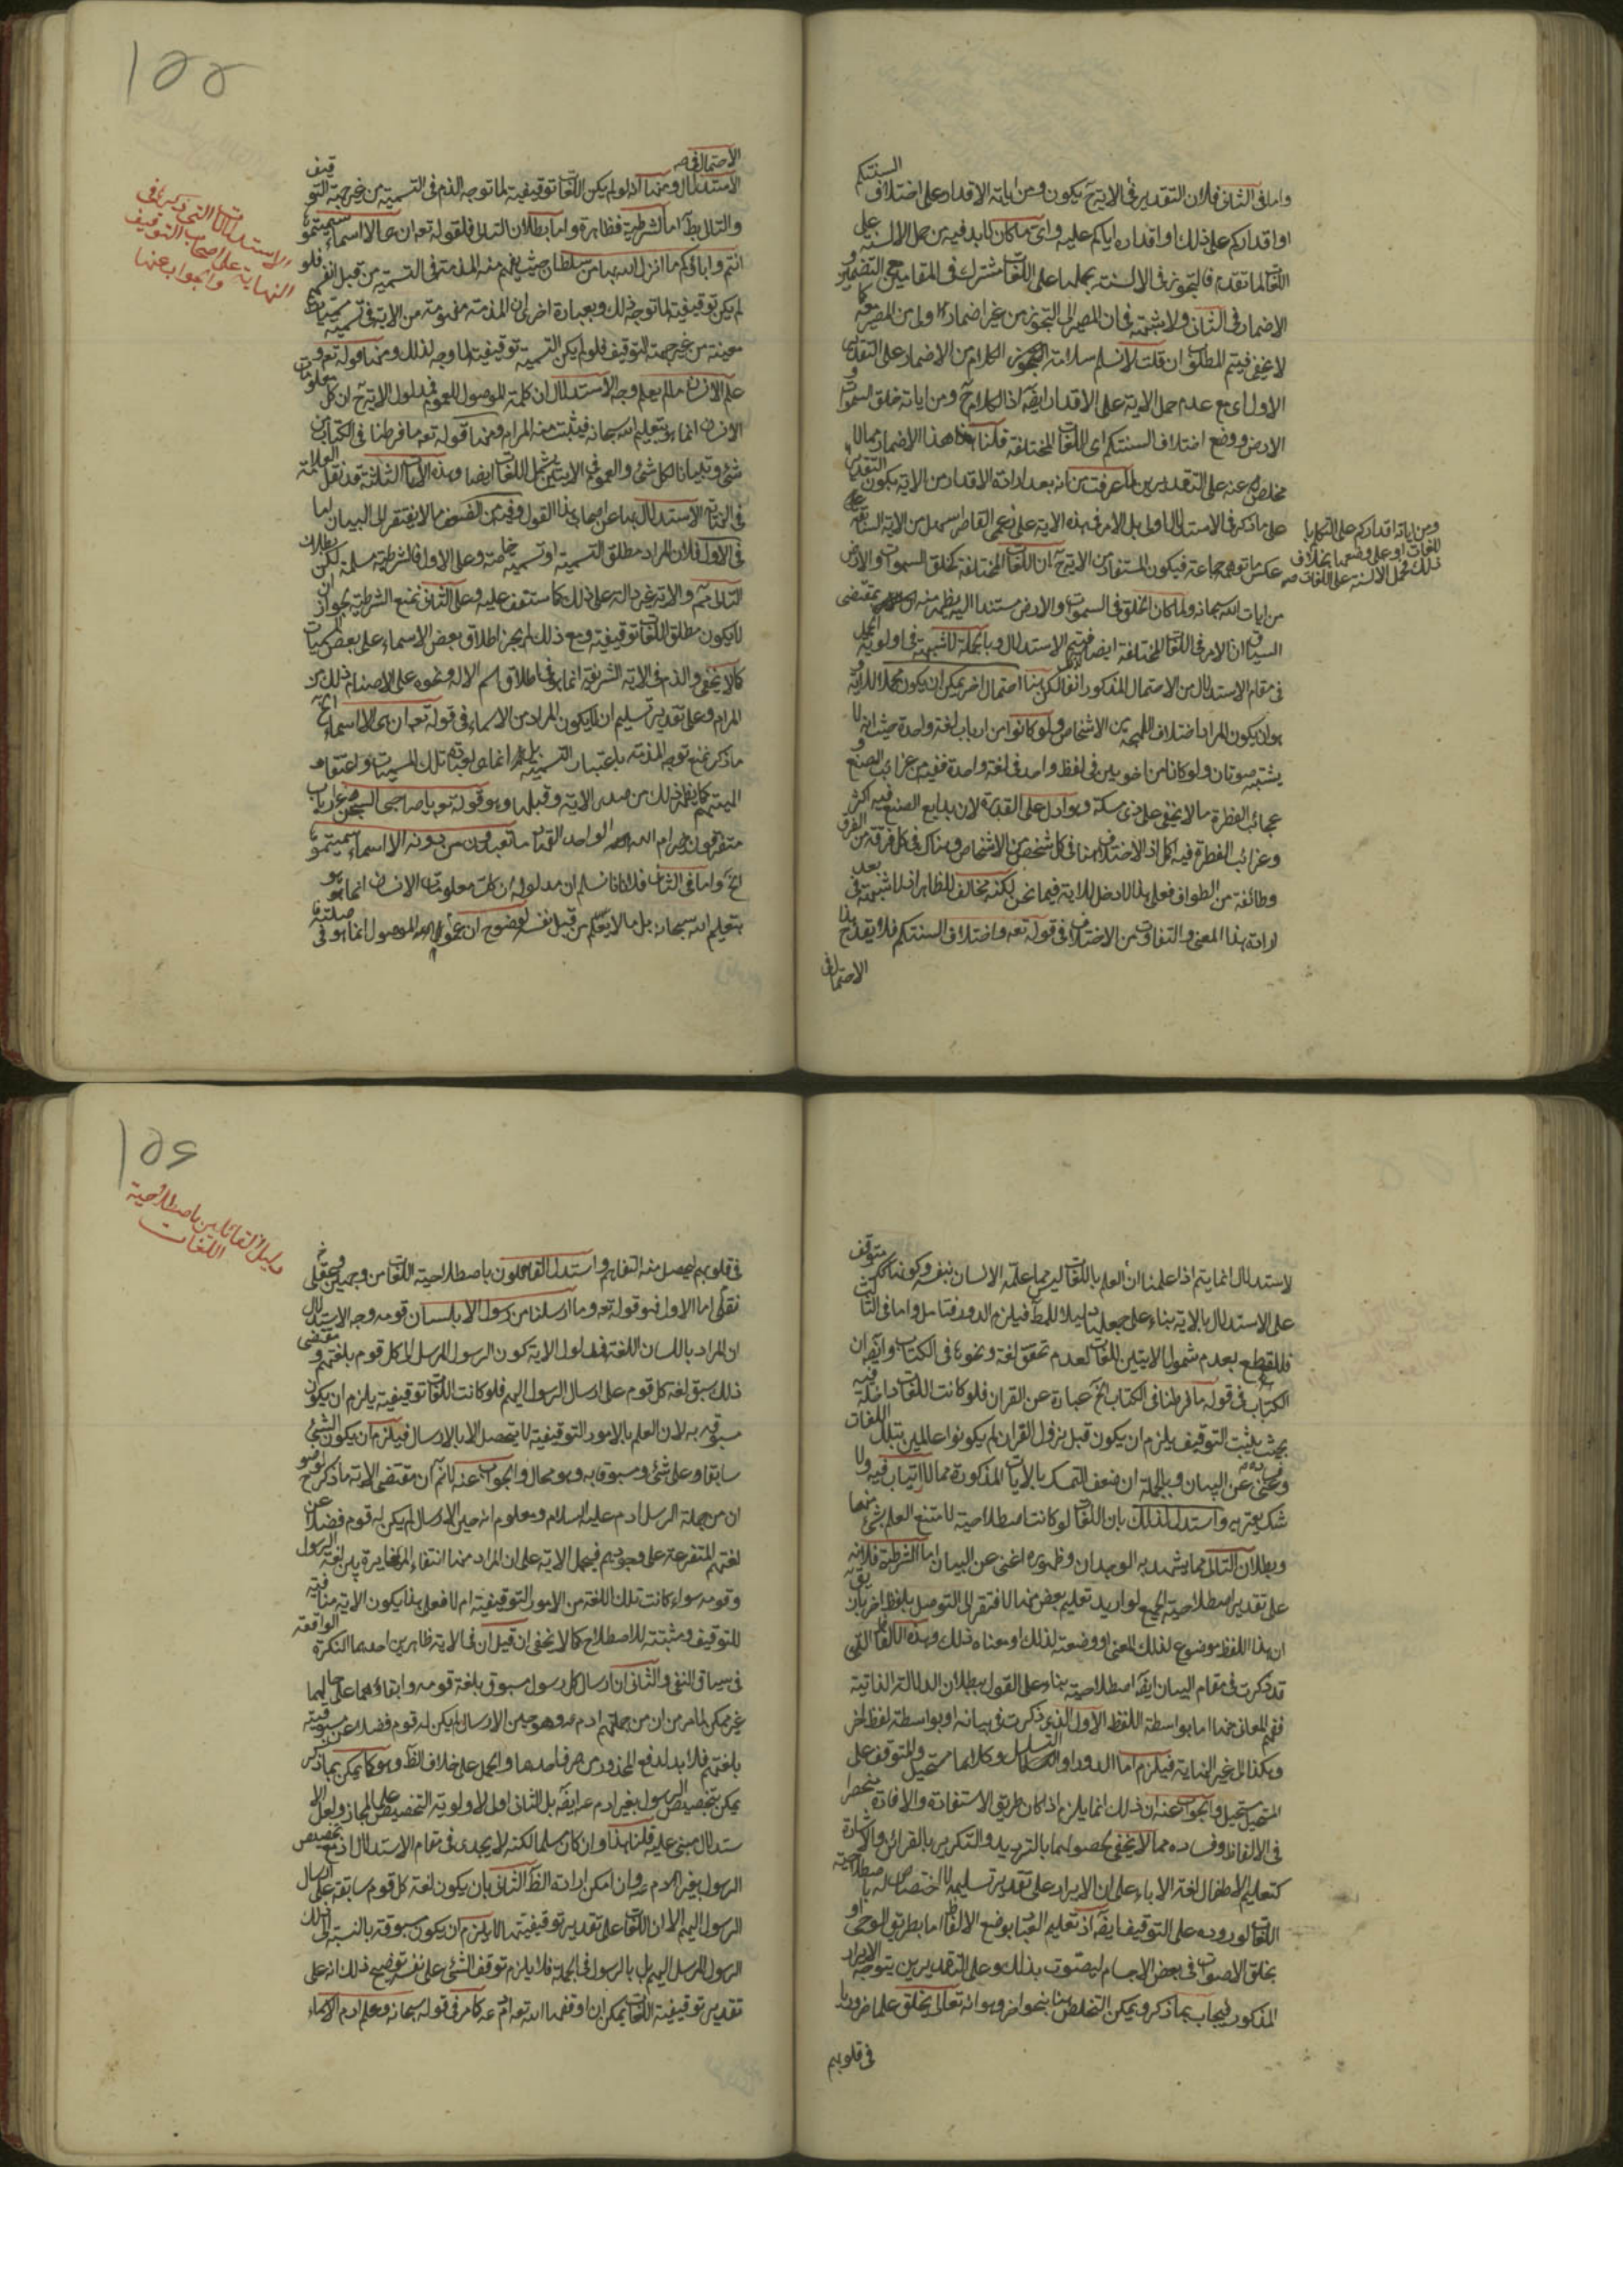 واما فى الثانى فلان التقدير فى الاية ح يكون ومن اياته الاقدار على اختلاف السنتكم
او اقداركم على ذلك او اقداره اياكم عليه واى ما كان لابد فيه من حمل الالسنة على
اللغات لما تقدم فالتجوز فى الالسنة بحملها على اللغات مشترك فى المقامين مع التضمين و
الاضمار فى الثانى ولا شبهة فى ان المصير الى التجوز من غير اضمار اولى من المصير معه كما
لا يخفى فيتم المطلوب ان قلت لا نسلم سلامة الكلام من الاضمار على التقدير
الاول اى مع عدم حمل الاية على الاقدار ايضا اذ الكلام ح ومن اياته خلق السموات و
الارض ووضع اختلاف السنتكم اى اللغات المختلفة قلنا هذا الاضمار مما لا
مخلص عنه على التقديرين لما عرفت من انه بعد ارادة الاقدار من الاية يكون التقدير
على ما ذكر فى الاستدلال اولى بل الامر فى هذه الاية على زعمى القاصر اسهل من الاية السابقة على
عكس ما توهمه جماعة فيكون المستفاد من الاية ح ان اللغات المختلفة كخلق السموات والارض
من ايات الله سبحانه ولما كان الخلق فى السموات والارض مستندا اليه يظهر منه بمقتضى
السياق ان الامر فى اللغات المختلفة ايضا فيتم الاستدلال وبالجملة لا شبهة فى اولوية الحمل
فى مقام الاستدلال من الاحتمال المذكور انفا لكن هنا احتمال اخر يمكن ان يكون محملا للاية
هو ان يكون المراد اختلاف اللهجة بين الاشخاص ولو كانوا من ارباب لغة واحدة حيث انه لا
يشتبه صوتان ولو كانا من اخوين فى لفظ واحد فى لغة واحدة ففيه من غرائب الصنع و
عجائب الفطرة ما لا يخفى على ذى مسكة وهو ادل على القدرة لان بدايع الصنع فيه اكثر
وغرائب الفطرة فيه اكمل اذ الاختلاف هنا فى كل شخص من الاشخاص وهناك فى كل فرقة من الفرق
وطائفة من الطوائف فعلى هذا لا دخل للاية فيما نحن فيه لكنه مخالف للظاهر اذ لا شبهة فى بعد
ارادة هذا المعنى والتفاوت من الاختلاف فى قوله تعه واختلاف السنتكم فلا يقدح هذا
الاحتمال فى
ومن اياته اقداركم على التكلم با
للغات او على وضعها بخلاف
ذلك فحمل الالسنة على اللغات صه
١٥٥
الاستدلالات التى ذكرها فى
النهاية على اصحاب التوقيف
والجواب عنها
الاحتمال فى صه
الاستدلال ومنها انه لو لم يكن اللغات توقيفية لما توجه الذم فى التسمية من غير جهة التوقيف
والتالى بط اما الشرطية فظاهرة واما بطلان التالى فلقوله تعه ان هى الا اسماء سميتموها
انتم واباؤكم ما انزل الله بها من سلطان حيث يفهم منه المذمة فى التسمية من قبل انفسهم فلو
لم يكن توقيفية لما توجه ذلك وبعبارة اخرى ان المذمة مفهومة من الاية فى تسمية مسميات
معينة من غير جهة التوقيف فلو لم يكن التسمية توقيفية لما وجه لذلك ومنها قوله تعه و
علم الانسان ما لم يعلم وجه الاستدلال ان كلمة الموصول للعموم فمدلول الاية ح ان كل معلومات
الانسان انما هو بتعليم الله سبحانه فيثبت منه المرام ومنها قوله تعه ما فرطنا فى الكتاب من
شئ وتبيانا لكل شئ والعموم فى الايتين يشمل اللغات ايضا وهذه الايات الثلثة قد نقل العلامة
فى النهاية الاستدلال بها عن اصحاب هذا القول وفيه من الضعف ما لا يفتقر الى البيان اما
فى الاول فلان المراد مطلق التسمية او تسمية خاصة وعلى الاول فالشرطية مسلمة لكن بطلان
التالى مم والاية غير دالة على ذلك كما ستقف عليه وعلى الثانى نمنع الشرطية لجواز ان
لا يكون مطلق اللغات توقيفية ومع ذلك لم يجز اطلاق بعض الاسماء على بعض المسميات
كما لا يخفى والذم فى الاية الشريفة انما هو فى اطلاق اسم الاله ونحوه على الاصنام ذلك من
المرام وعلى تقدير تسليم ان لا يكون المراد من الاسماء فى قوله تعه ان هى الا اسماء الخ
ما ذكر نمنع توجه المذمة باعتبار التسمية بل انما هو تلك المسميات واعتقاد
الهيتهم كما يظهر ذلك من صدر الاية وقبلها وهو قوله تعه يا صاحبى السجن ءارباب
متفرقون خير ام الله الواحد القهار ما تعبدون من دونه الا اسماء سميتموها
الخ واما فى الثانى فلانا لا نسلم ان مدلوله ان كل معلومات الانسان انما هو
بتعليم الله سبحانه بل ما لا يعلم من قبل نفسه لوضوح ان عموم الموصول انما هو فى صلته فا
لاستدلال انما يتم اذا علمنا ان العلم باللغات ليس مما علمه الانسان بنفسه وكونها كك متوقف
على الاستدلال بالاية بناء على جعلها دليلا للمط فيلزم الدور فتامل واما فى الثالث
فللقطع بعدم شمول الايتين للغات لعدم تحقق لغة ونحوها فى الكتاب وايضا ان
الكتاب فى قوله ما فرطنا فى الكتاب الخ عبارة عن القران فلو كانت اللغات داخلة فيه
بحيث يثبت التوقيف يلزم ان يكون قبل نزول القران لم يكونوا عالمين بتلك اللغات
وغنى عن البيان وبالجملة ان ضعف التمسك بالايات المذكورة مما لا ارتياب فيه ولا
شك يعتريه واستدل لذلك بان اللغات لو كانت اصطلاحية لامتنع العلم بشئ منها
وبطلان التالى مما يشهد به الوجدان وظهوره اغنى عن البيان اما الشرطية فلانه
على تقدير اصطلاحية الجميع لو اريد تعليم بعض منها لافتقر الى التوصل بلفظ اخر بان يق
ان هذا اللفظ موضوع لذلك المعنى او وضعته لذلك او معناه ذلك وهذه الالفاظ التى
قد ذكرت فى مقام البيان ايضا اصطلاحية بناء على القول ببطلان الدلالة الذاتية
ففهم المعانى منها اما بواسطة اللفظ الاول الذى ذكرت فى بيانه او بواسطة لفظ اخر
وهكذا الى غير النهاية فيلزم اما الدور او التسلسل وكلاهما مستحيل والمتوقف على
المستحيل مستحيل والجواب عنه ان ذلك انما يلزم اذا كان طريق الاستفادة والافادة منحصرا
فى الالفاظ وفساده مما لا يخفى لحصولهما بالترديد والتكرير بالقرائن والاشارة
كتعليم الاطفال لغة الاباء على ان الايراد على تقدير تسليمه لا اختصاص له باصطلاحية
اللغات لوروده على التوقيف ايضا اذ تعليم العباد بوضع الالفاظ اما بطريق الوحى او
بخلق الاصوات فى بعض الاجسام ليصوت بذلك وعلى التقديرين يتوجه الايراد
المذكور فيجاب بما ذكر ويمكن التخلص هنا بنحو اخر وهو انه تعالى يخلق علما ضروريا
فى قلوبهم
١٥٤
دليل القائلين باصطلاحية
اللغات
فى قلوبهم ليحصل منه التفاهم واستدل القائلون باصطلاحية اللغات من وجهين عقلى و
نقلى اما الاول فهو قوله تعه وما ارسلنا من رسول الا بلسان قومه وجه الاستدلال
ان المراد باللسان اللغة فمدلول الاية كون الرسول المرسل الى كل قوم بلغتهم ومقتضى
ذلك سبق لغة كل قوم على ارسال الرسول اليهم فلو كانت اللغات توقيفية يلزم ان يكون
مسبوقة به لان العلم بالامور التوقيفية لا يتحصل الا بالارسال فيلزم ان يكون الشئ
سابقا على شئ ومسبوقا به وهو محال والجواب عنه لا نم ان مقتضى الاية ما ذكر لوضوح
ان من جملة الرسل ادم عليه السلام ومعلوم انه حين الارسال لم يكن له قوم فضلا عن
لغتهم المتفرعة على وجودهم فيحمل الاية على ان المراد منها انتفاء المغايرة بين لغة الرسول
وقومه سواء كانت تلك اللغة من الامور التوقيفية ام لا فعلى هذا يكون الاية منافية
للتوقيف ومثبتة للاصطلاح كما لا يخفى ان قيل ان فى الاية ظاهرين احدهما النكرة الواقعة
فى سياق النفى والثانى ان ارسال كل رسول مسبوق بلغة قومه وابقاؤهما على حالهما
غير ممكن لما مر من ان من جملتهم ادم عه وهو حين الارسال لم يكن له قوم فضلا عن مسبوقية
بلغتهم فلا بد لدفع المحذور من صرف احدهما والحمل على خلاف الظ وهو كما يمكن بما ذكر
يمكن بتخصيص الرسول بغير ادم عه ايضا بل الثانى اولى لاولوية التخصيص على المجاز ولعل الا
ستدلال مبنى عليه قلنا هذا وان كان مسلما لكنه لا يجدى فى مقام الاستدلال اذ مع تخصيص
الرسول بغير ادم عه وان امكن ارادة الظ الثانى بان يكون لغة كل قوم سابقة على ارسال
الرسول اليهم الا ان اللغات على تقدير توقيفيتها لا يلزم ان يكون مسبوقة بالنسبة الى ذلك
الرسول المرسل اليهم بل بالرسول فى الجملة فلا يلزم توقف الشئ على نفسه توضيح ذلك انه على
تقدير توقيفية اللغات يمكن ان اوقفها الله تعه ادم عه كما مر فى قوله سبحانه وعلم ادم الاسماء